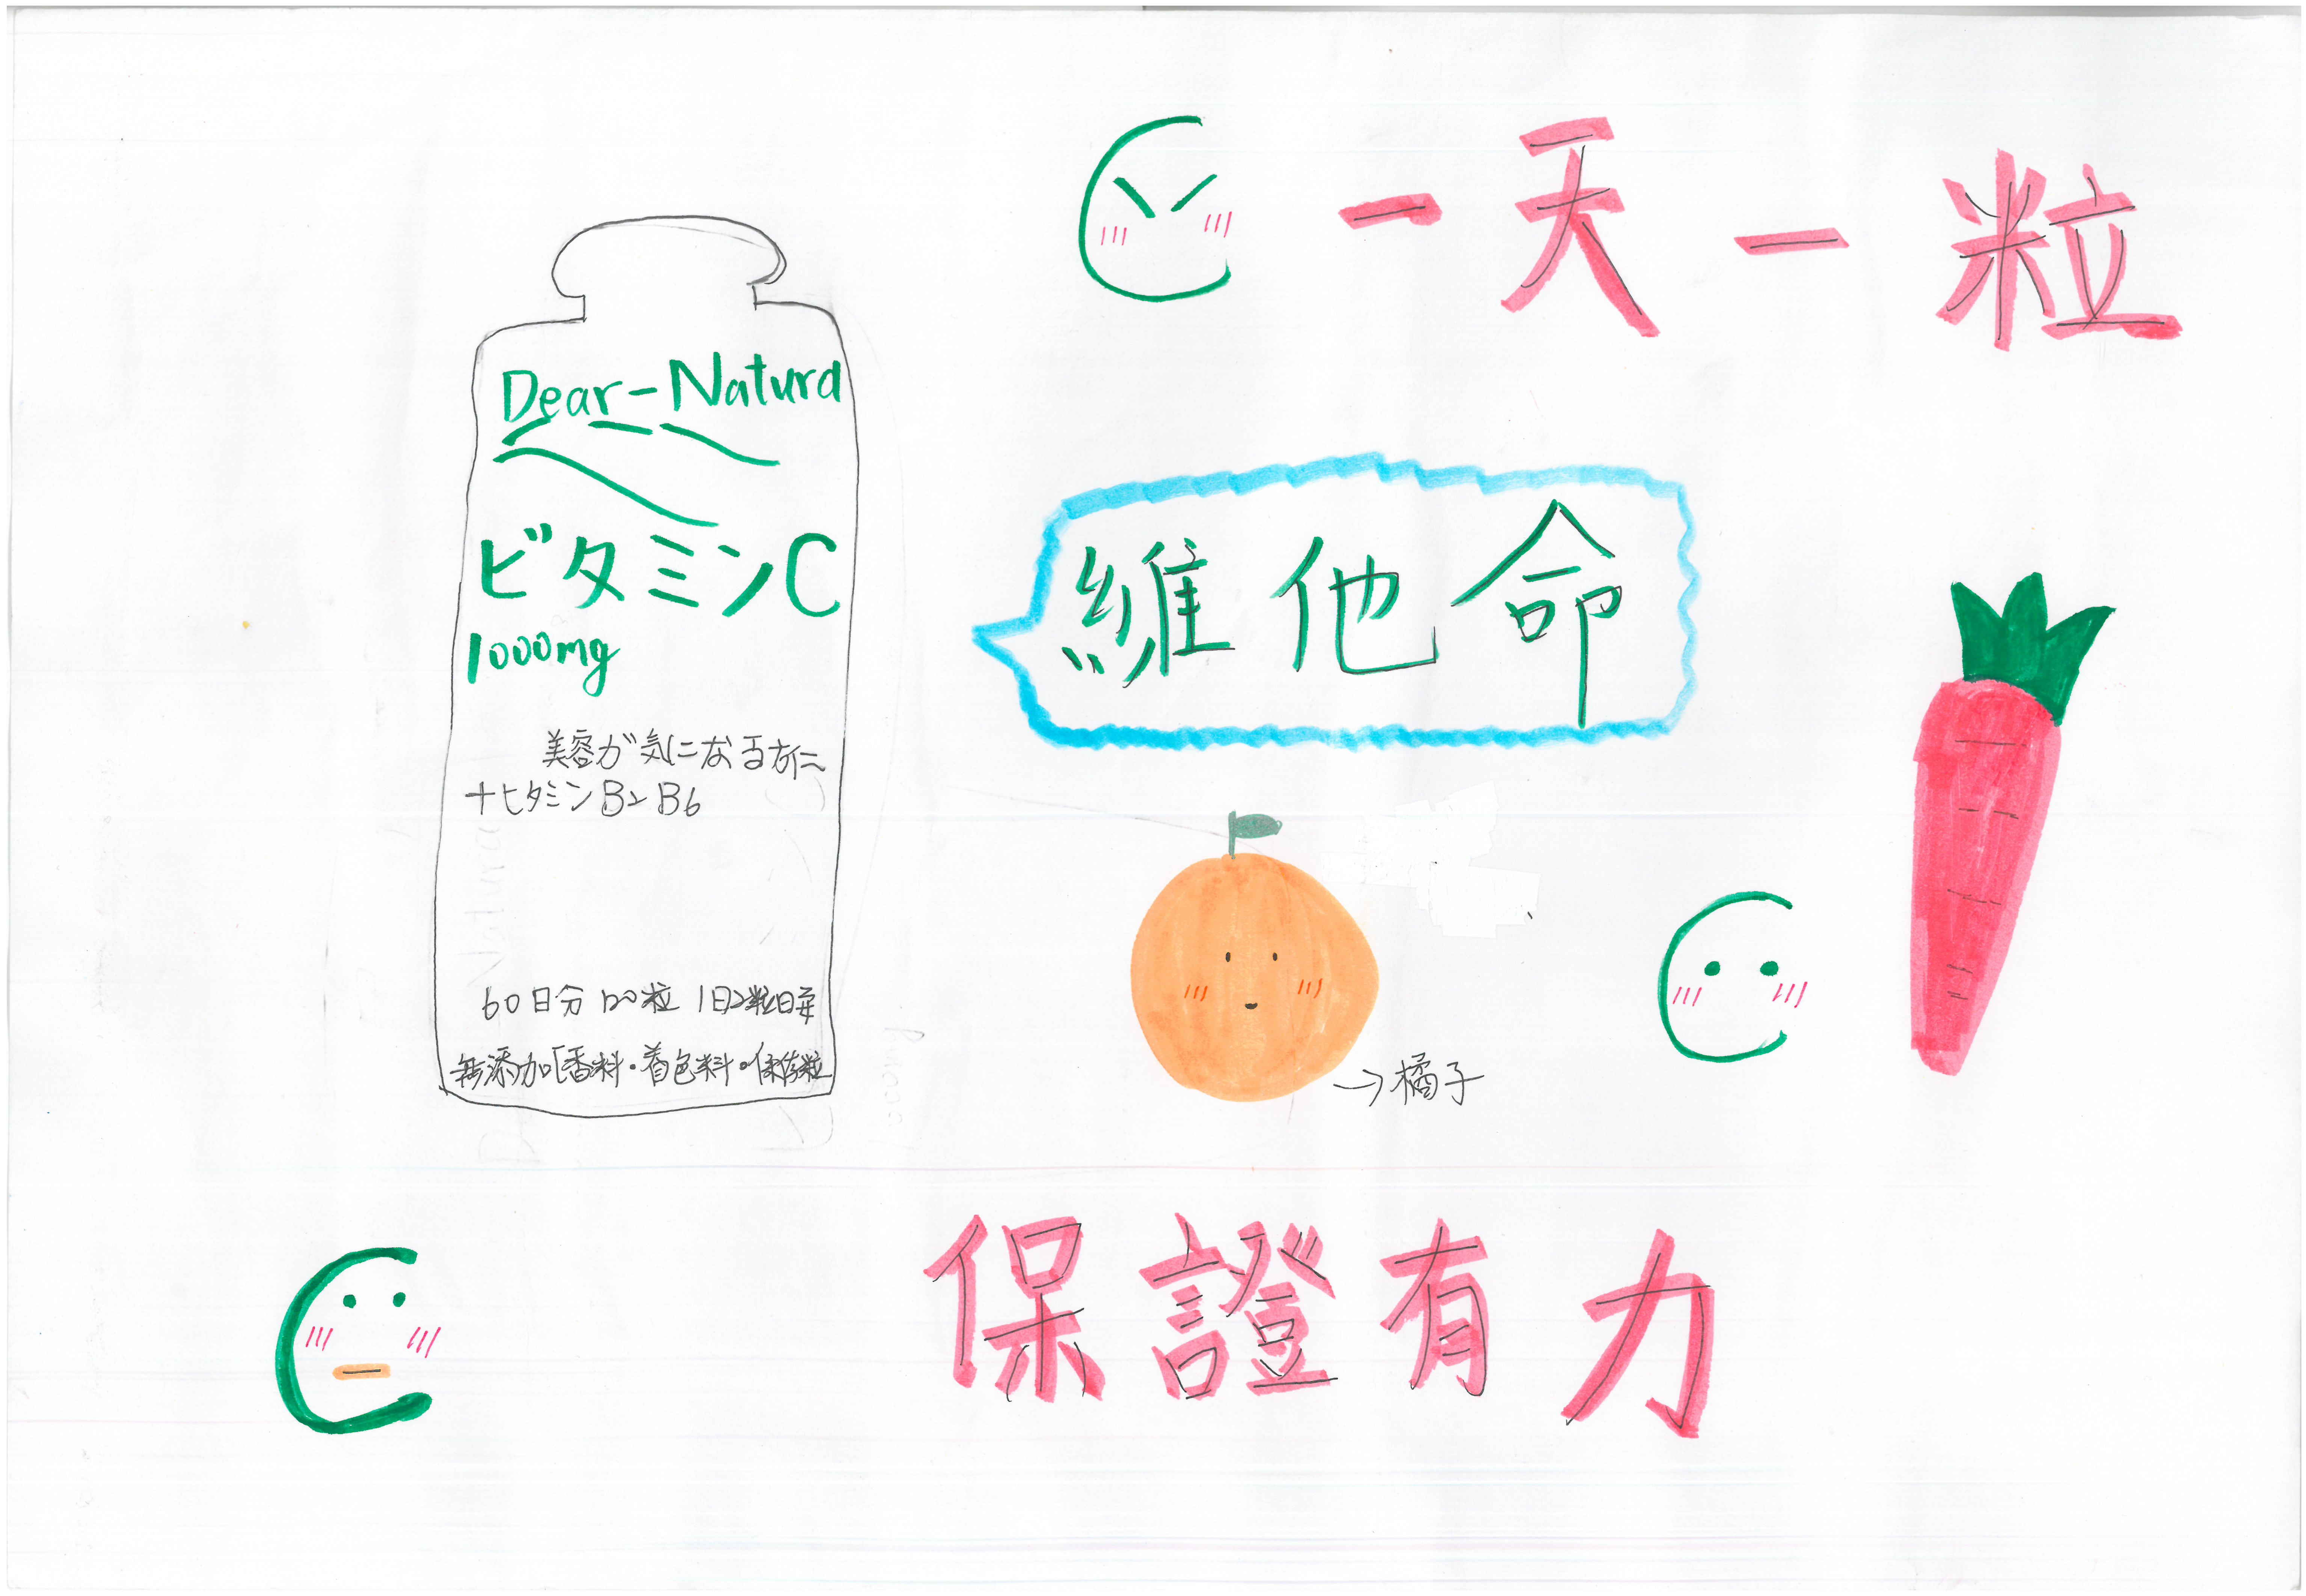 一天一粒
Dear-Natura
ビタミンC
1000mg
美容が気になる方に
+ビタミンB2B6
60日分 120粒 1日2粒目安
無添加[香料・着色料・保存
維他命
→橘子
保證有力